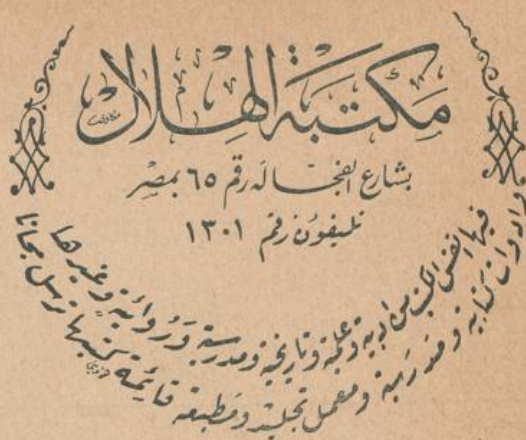 مكتبة الهلال
بشارع الفجالة رقم ٦٥ بمصر
تليفون رقم ١٣٠١
فيها انفس الكتب من ادبية وعلمية وتاريخية ومدرسية وروائية وغيرها
وادوات كتابية ومدرسية ومعمل تجليد ومطبعه قائمة كتبها ترسل مجانا